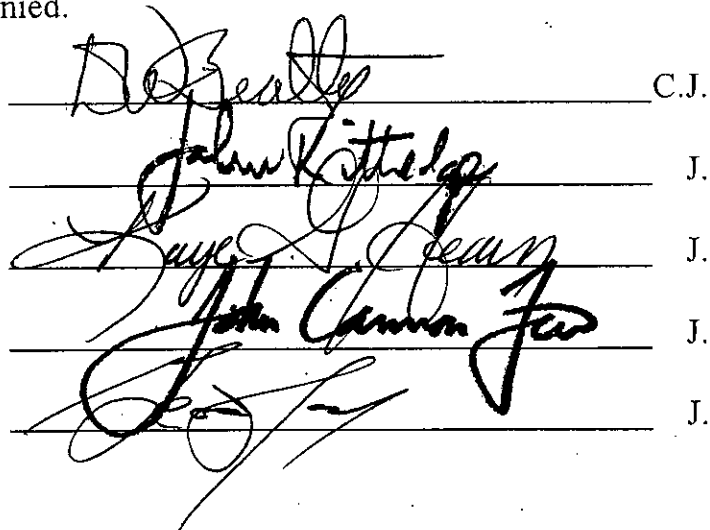 nied.
D Beatty C.J.
John Kittredge J.
Kaye G. Hearn J.
John Cannon Few J.
J.